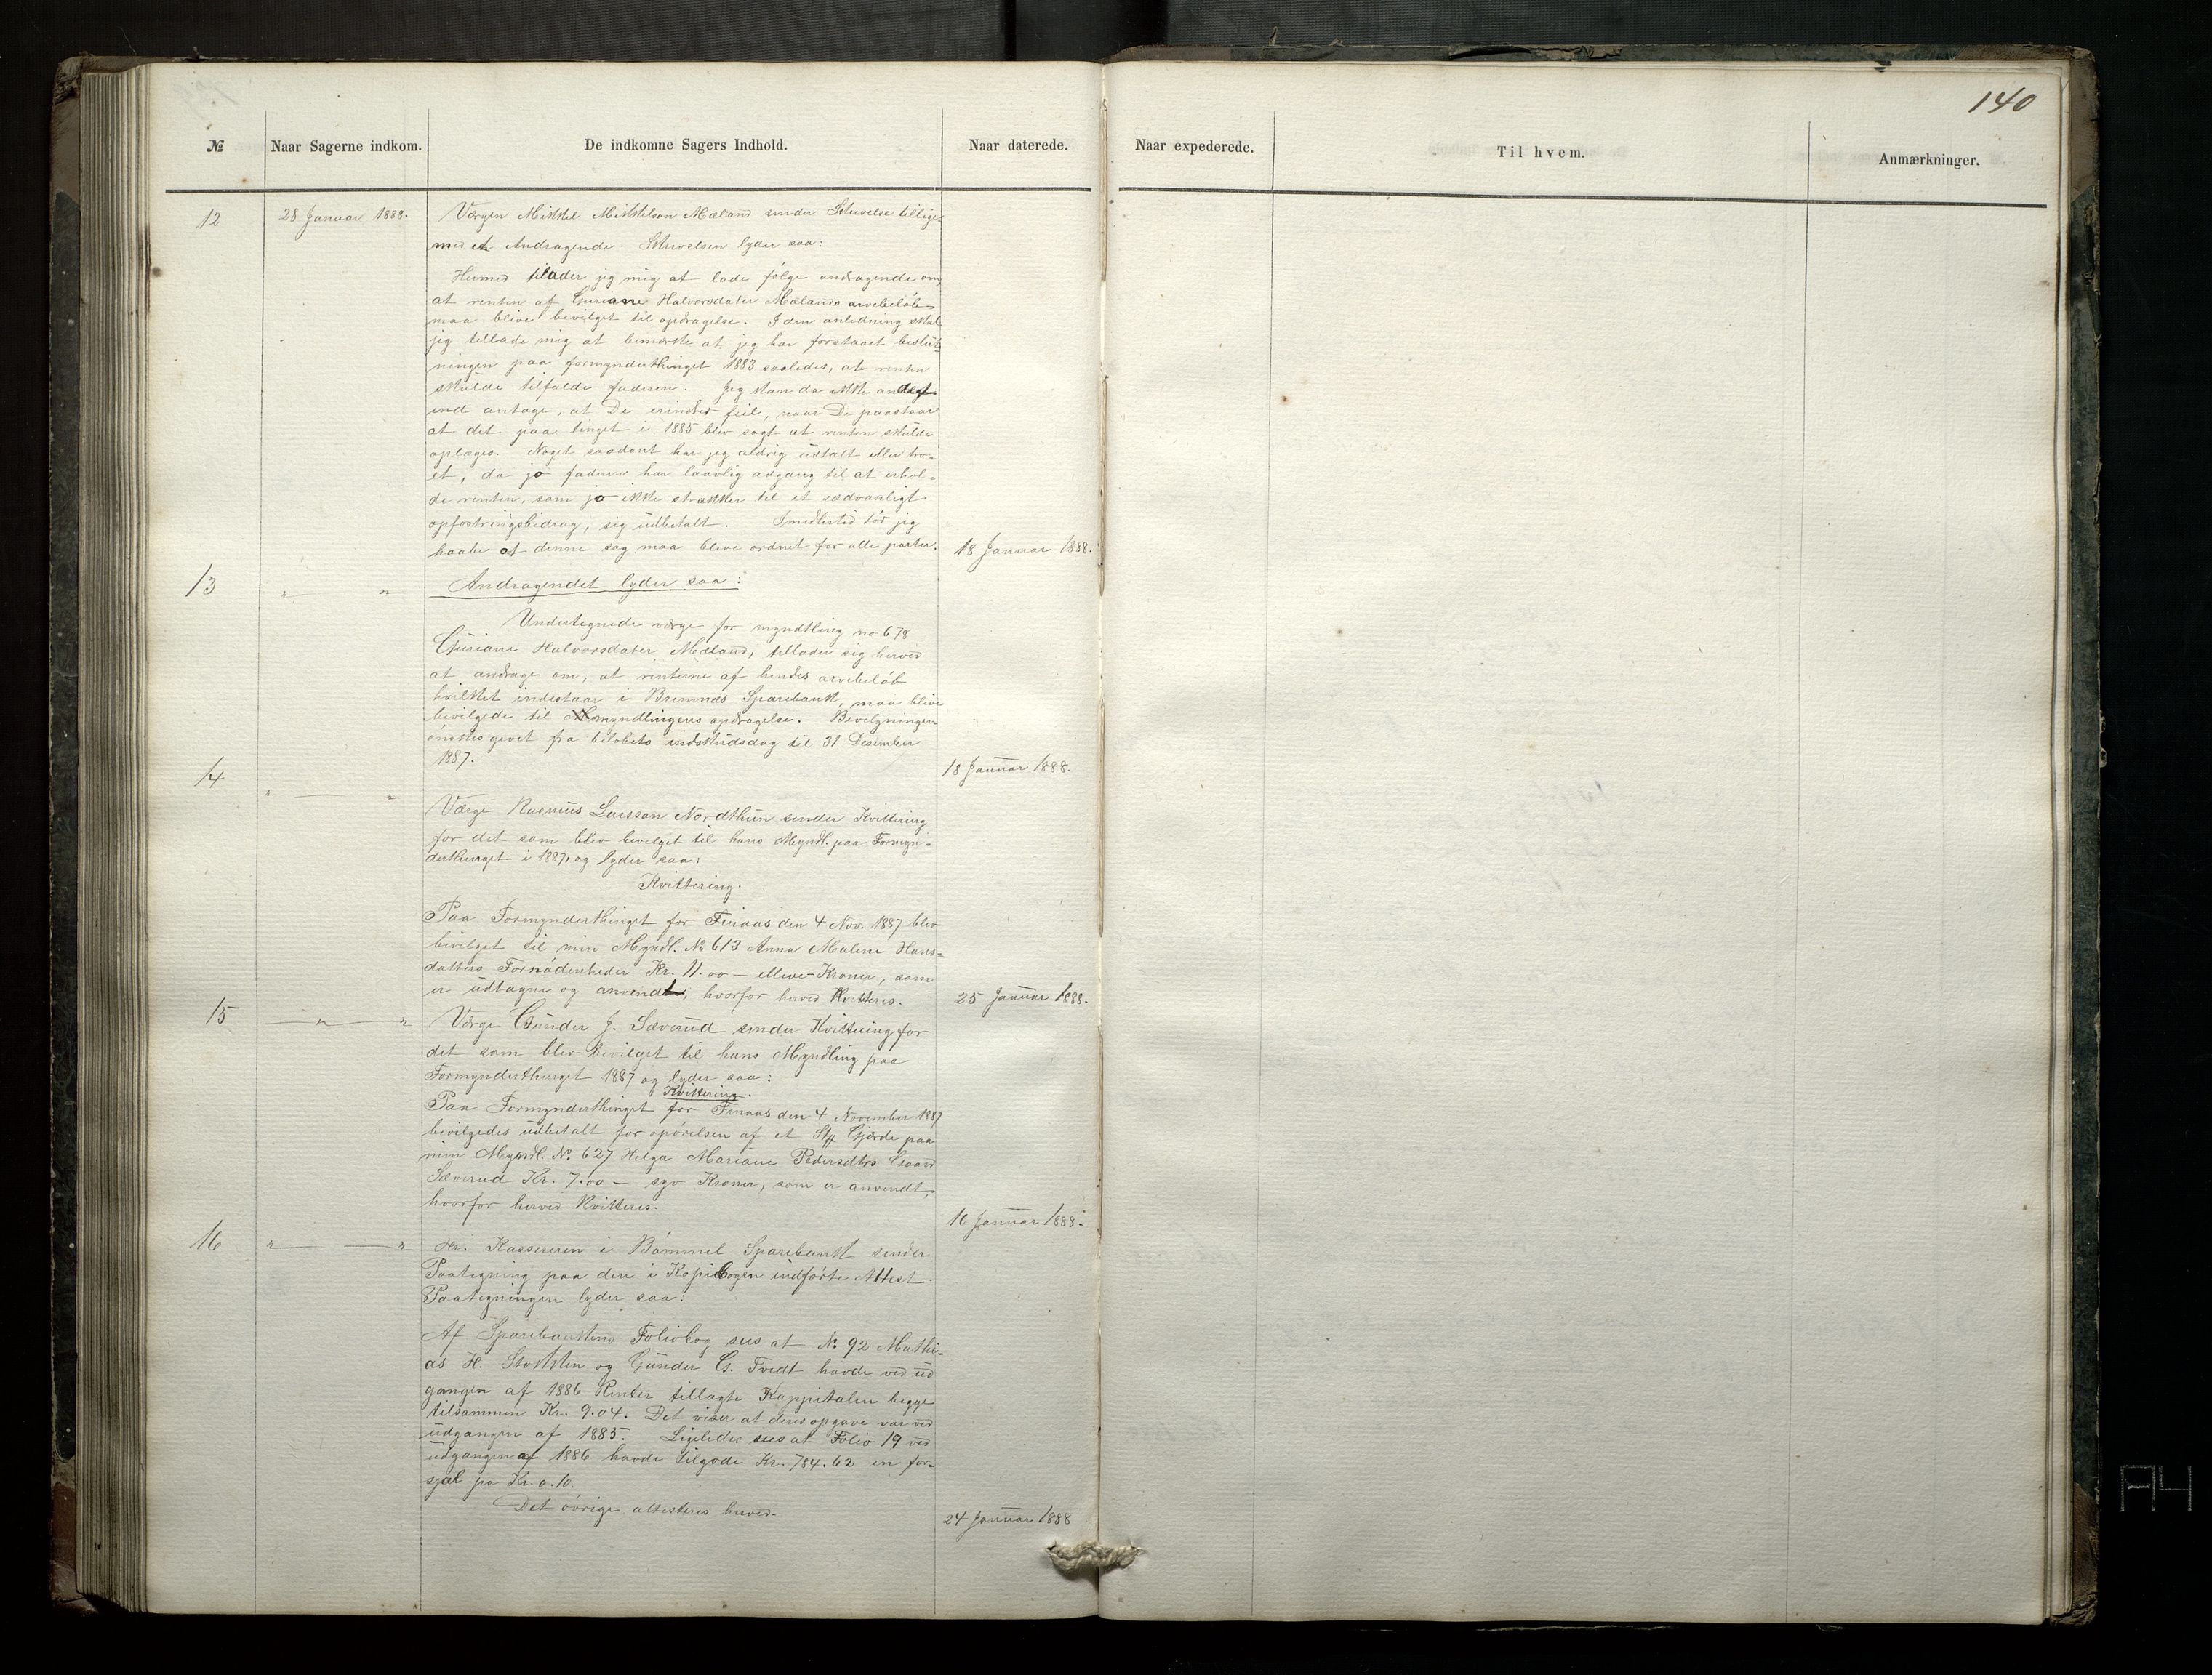 140
№ Naar Sagerne indkom. De indkomne Sagers Indhold. Naar daterede. Naar expederede. Til hvem. Anmærkninger.
12 28 Januar 1888. Værgen Mikkel Mikkelson Mæland sender Skrivelse tillige-
med et Andragende. Skrivelsen lyder saa:
Hermed tilader jeg mig at lade følge andragende om,
at renten af Guriane Halvorsdater Mælands arvebeløb
maa blive bevilget til opdragelse. I den anledning skal
jeg tillade mig at bemærke at jeg har forstaaet beslut-
ningen paa formynderthinget 1883 saaledes, at renten
skulde tilfalde faderen. Jeg kan da ikke andet
end antage, at De erindrer feil, naar De paastaar
at det paa tinget i 1885 blev sagt at renten skulde
oplæges. Noget saadant har jeg aldrig udtalt eller tro-
et, da jo faderen har laavlig adgang til at erhol-
de renten, som jo ikke strækker til et sædvanligt
opfostringsbidrag, sig udbetalt. Imidlertid tør jeg
haabe at denne sag maa blive ordnet for alle parter. 18 Januar 1888.
13 " — " Andragendet lyder saa:
Undertegnede værge for myndtling no 678
Guriane Halvorsdater Mæland, tillader sig herved
at andrage om, at renterne af hendes arvebeløb
hvilket indestaar i Bremnæs Sparebank, maa blive
bevilgede til myndlingens opdragelse. Bevilgningen
ønskes givet fra beløbets indskudsdag til 31 Desember
1887. 18 Januar 1888.
14 " — " Værge Rasmus Larsson Nordthun sender Kvittering
for det som blev bevilget til hans Myndl. paa Formyn-
derthinget i 1887, og lyder saa:
Kvittering.
Paa Formynderthinget for Finaas den 4 Nov. 1887 blev
bevilget til min Myndl. № 613 Anna Maline Hans-
datters Fornødenheder Kr. 11.00 — elleve Kroner, som
er udtagne og anvendt, hvorfor herved Kvitteres. 25 Januar 1888.
15 " — " Værge Gunder J. Sæverud sender Kvittering for
det som blev bevilget til hans Myndling paa
Formynderthinget 1887 og lyder saa:
Kvittering.
Paa Formynderthinget for Finaas den 4 November 1887
bevilgedes udbetalt for opørelsen af et Stk Gjærde paa
min Myndl. № 627 Helga Mariane Pedersdtrs Gaard
Sæverud Kr. 7.00 — syv Kroner, som er anvendt,
hvorfor herved Kvitteres. 16 Januar 1888.
16 " — " Hr. Kassereren i Bømmel Sparebank sender
Paategning paa den i Kopibogen indførte Attest.
Paategningen lyder saa:
Af Sparebankens Foliobog sees at № 92 Mathi-
as H. Stokken og Gunder G. Tvedt havde ved ud
gangen af 1886 Renter tillagte Kappitalen begge
tilsammen Kr. 9.04. Det viser at deres opgave var ved
udgangen af 1885. Ligeledes sees at Folio 19 ved
udgangen af 1886 havde tilgode Kr. 784.62 en for-
sjæl pa Kr. 0.10.
Det øvrige attesteres herved. 24 Januar 1888
A4